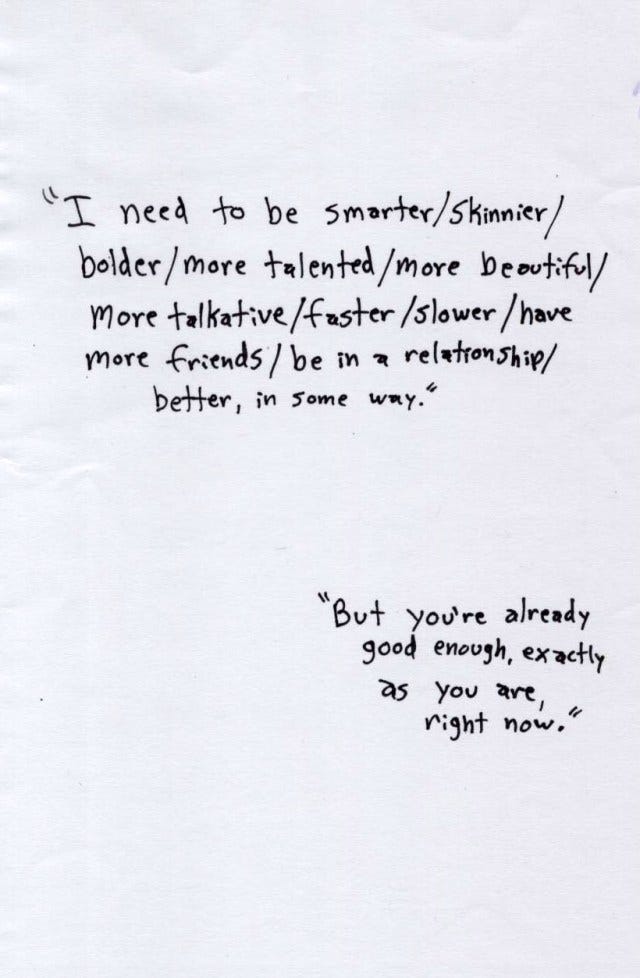 "I need to be smarter/skinnier/
bolder/more talented/more beautiful/
more talkative/faster/slower/have
more friends/be in a relationship/
better, in some way."
"But you're already
good enough, exactly
as you are,
right now."